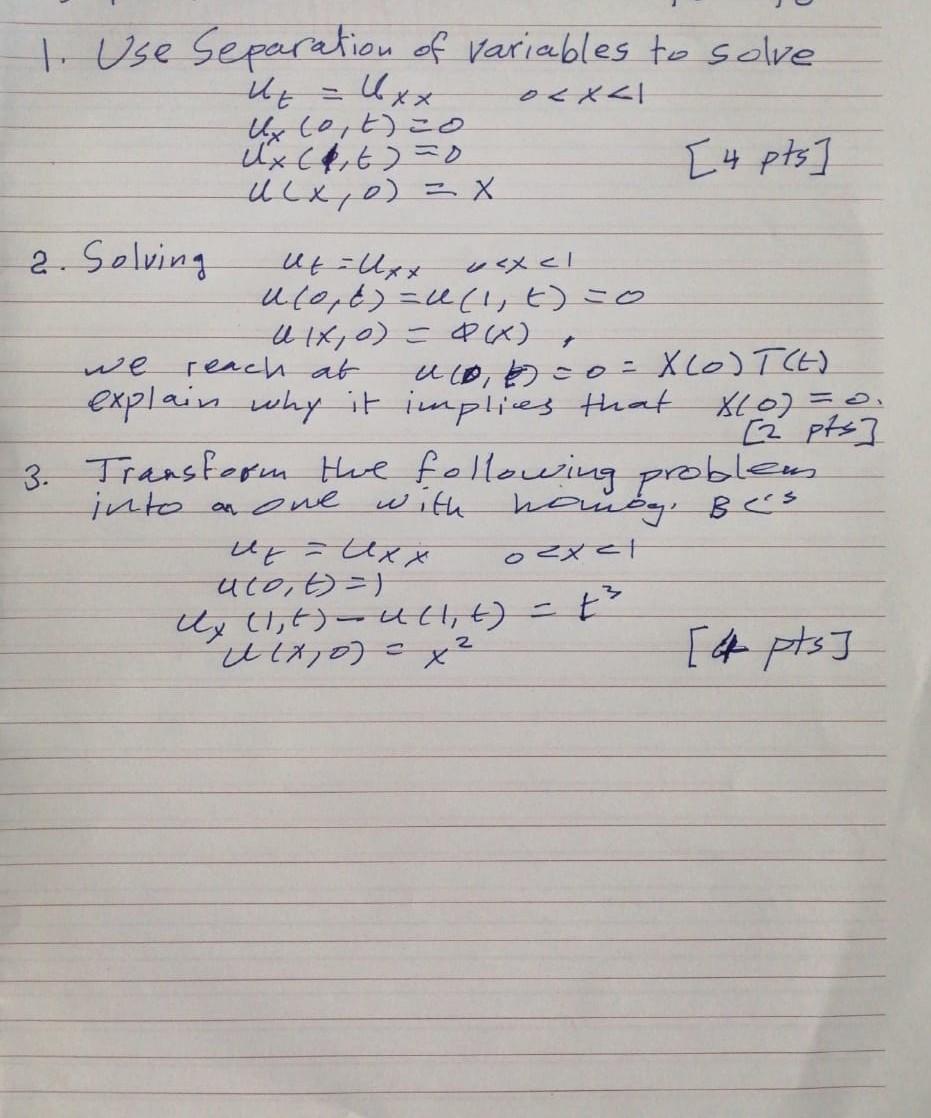 1. Use Separation of variables to solve
u_t = u_xx 0<x<1
u_x(0,t)=0
u_x(1,t)=0 [4 pts]
u(x,0) = x
2. Solving u_t=u_xx 0<x<1
u(0,t)=u(1,t)=0
u(x,0) = φ(x),
we reach at u(0,t)=0=X(0)T(t)
explain why it implies that X(0)=0.
[2 pts]
3. Transform the following problem
into an one with homog. BC's
u_t = u_xx 0<x<1
u(0,t)=1
u_x(1,t)-u(1,t) = t³
u(x,0) = x² [4 pts]